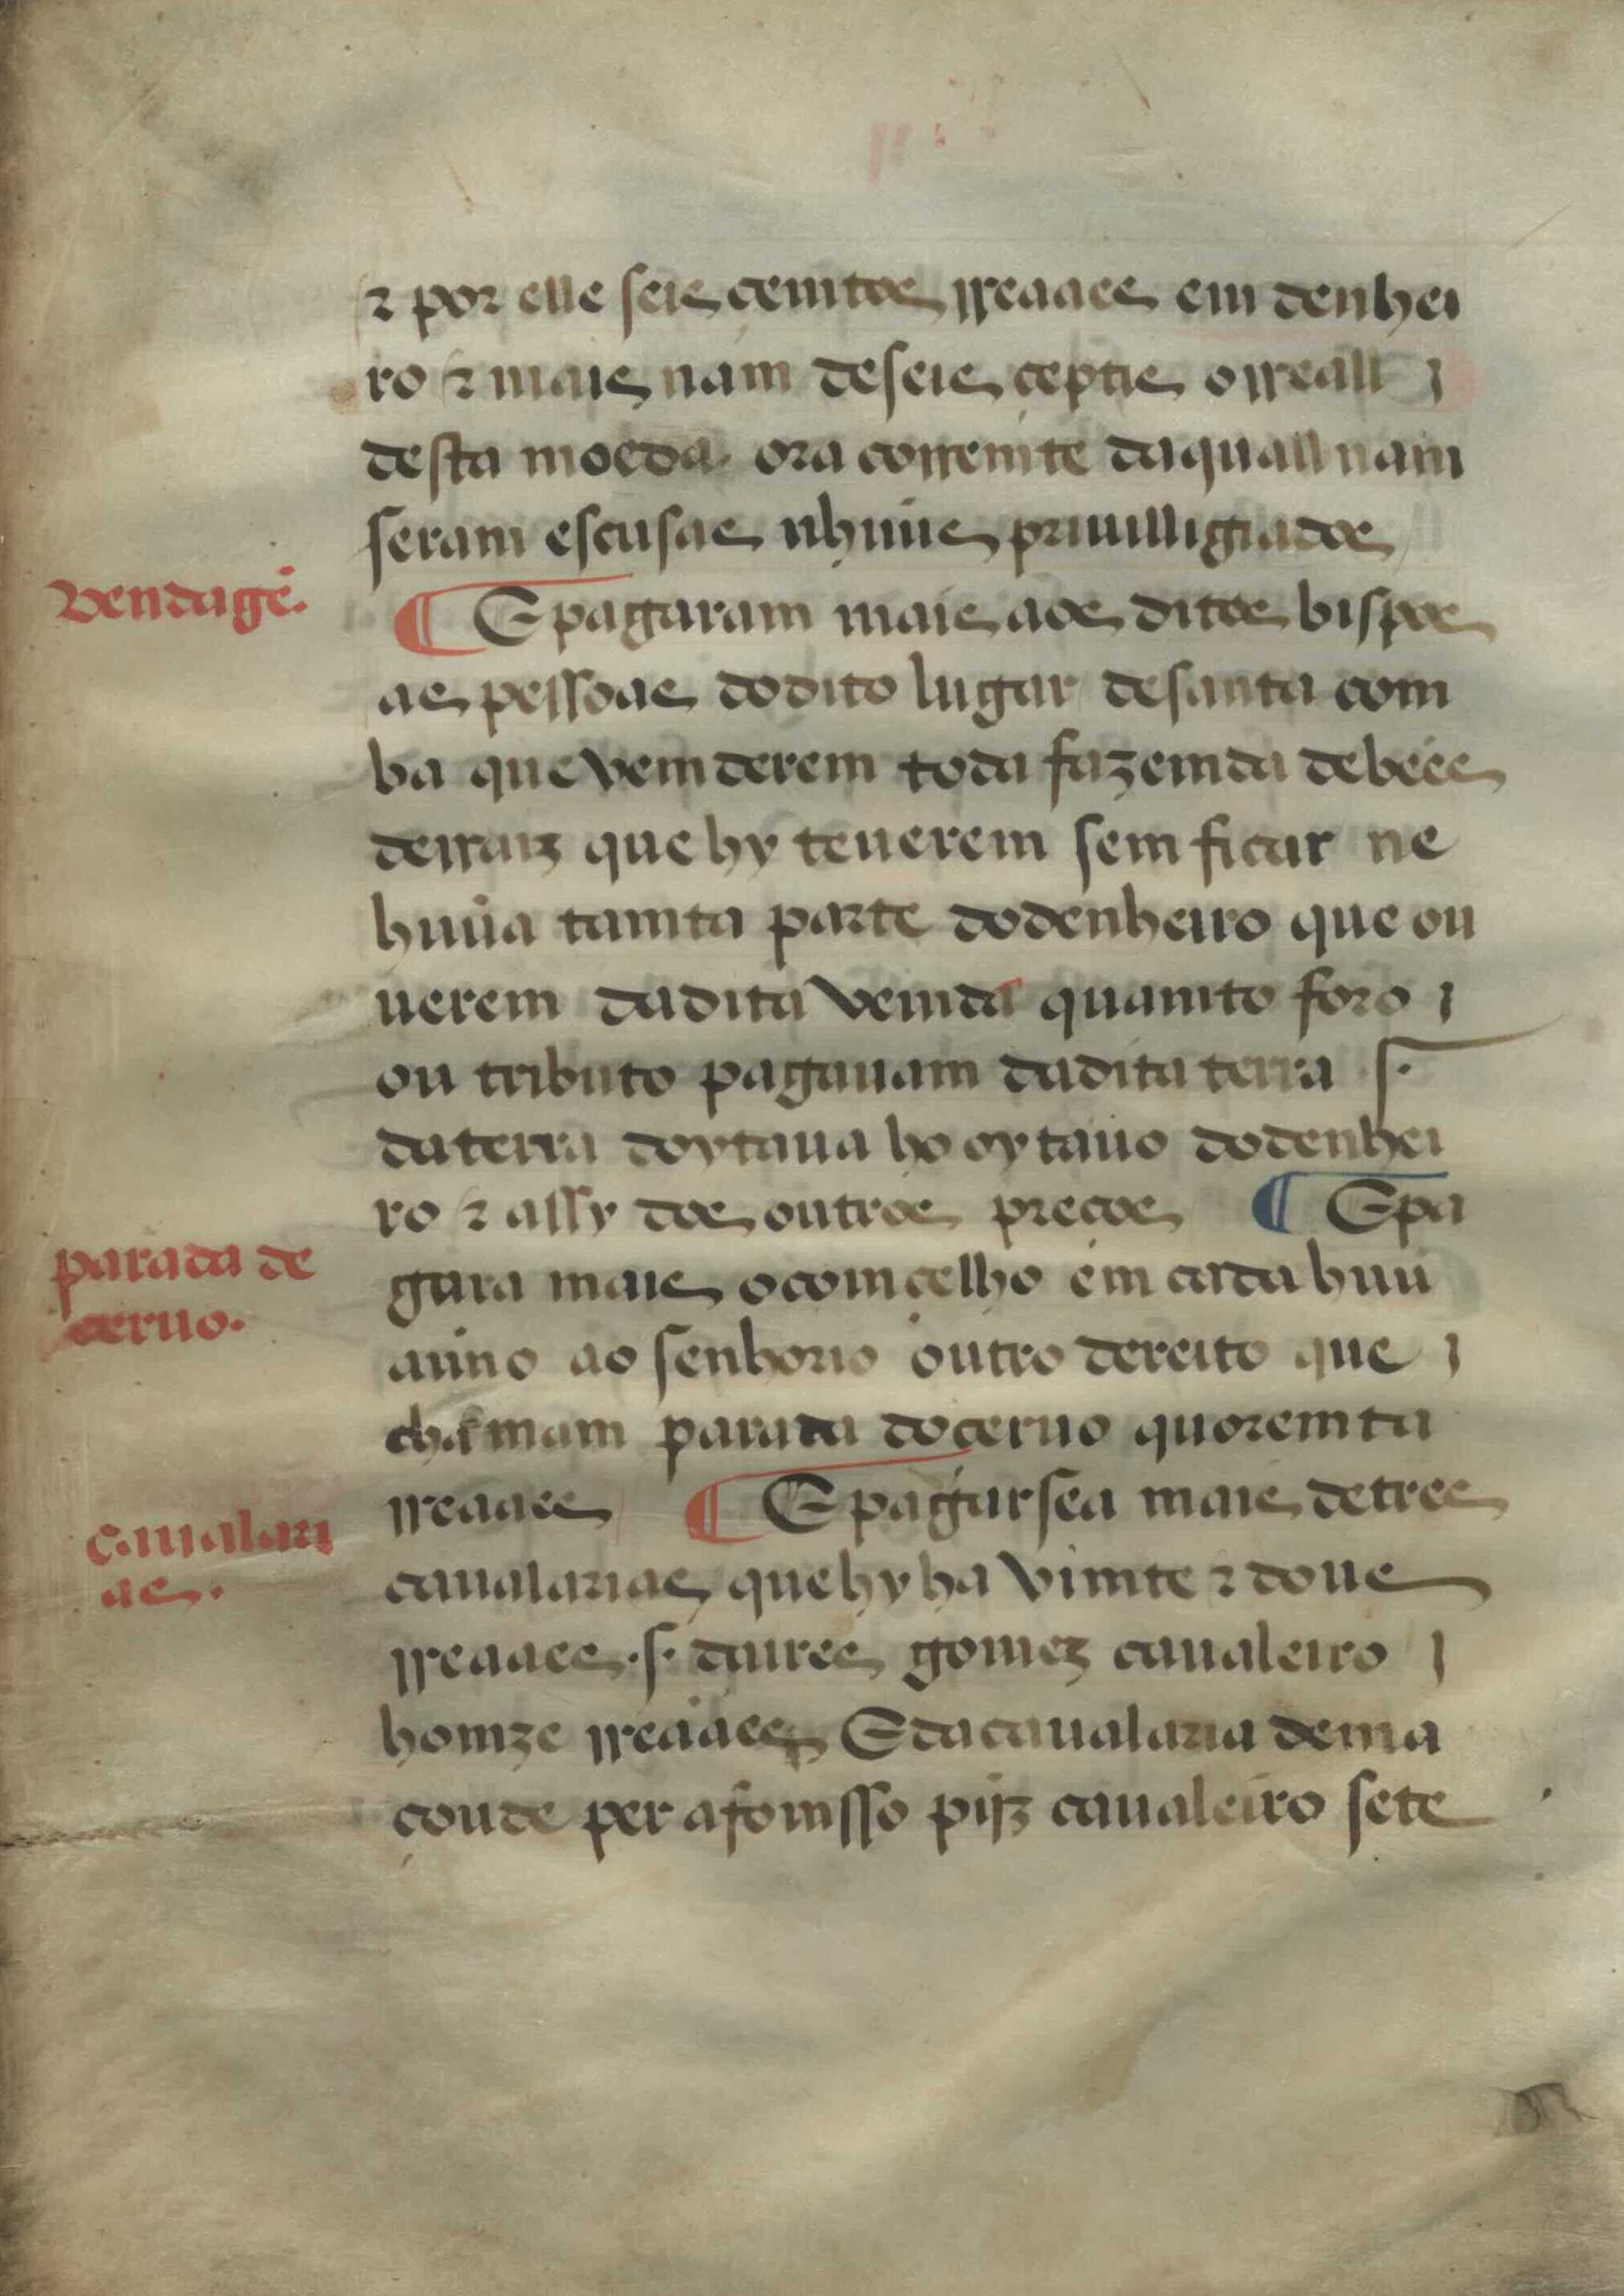 ⁊ por elle seis cemtos rreaaes em denhei
ro ⁊ mais nam de seis ceptis o rreall
desta moeda ora corremte da quall nam
seram escusas nhuũs priuilligiados
Vendagẽ.
¶ E pagaram mais aos ditos bispos
as pessoas do dito lugar de santa com
ba que vemderem toda fazemda de bẽes
de rraiz que hy teuerem sem ficar ne
huũa tamta parte do denheiro que ou
uerem da dita vemda quamto foro
ou tributo pagauam da dita terra .s.
da terra doytaua ho oytauo do denhei
ro ⁊ assy dos outros preços ¶ E pa
parada de
ceruo.
gara mais o comçelho em cada huũ
anno ao senhorio outro dereito que
chamam parada do ceruo quoremta
rreaaes ¶ E pagarsea mais de tres
caualari
as.
caualarias que hy ha vimte ⁊ dous
rreaaes .s. daires gomez caualeiro
homze rreaaes E da caualaria de ma
çoude per afomsso piꝶz caualeiro sete